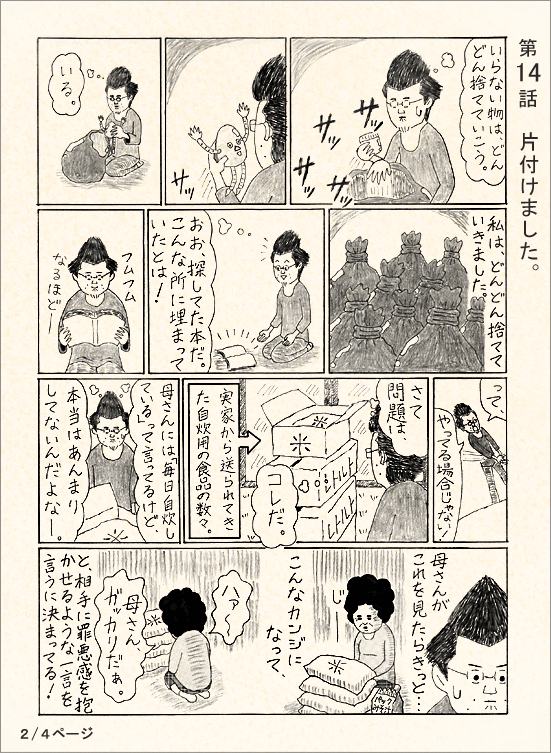 第14話 片付けました。
いらない物は、どん
どん捨てていこう。
サッ
サッ
サッ
サッ
いる。
私は、どんどん捨てて
いきました。
おお、探してた本だ。
こんな所に埋まって
いたとは！
フムフム
なるほどー
って、
やってる場合じゃない！
さて
問題は、
コレだ。
米
米
レトルト
実家から送られてき
た自炊用の食品の数々。
母さんには「毎日自炊し
ている」って言ってるけど、
本当はあんまり
してないんだよなー。
母さんが
これを見たらきっと…
じー
こんなカンジに
なって、
米
パック
ハァ〜
母さん、
ガッカリだぁ。
と、相手に罪悪感を抱
かせるような一言を
言うに決まってる！
2/4ページ